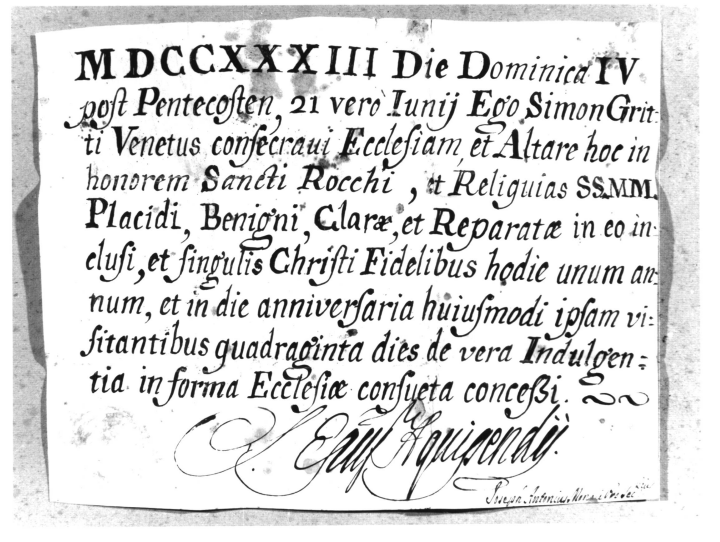 MDCCXXXIII Die Dominica IV
post Pentecosten, 21 vero Iunij Ego Simon Grit-
ti Venetus consecraui Ecclesiam, et Altare hoc in
honorem Sancti Rocchi, et Reliquias SS.MM.
Placidi, Benigni, Claræ, et Reparatæ in eo in-
clusi, et singulis Christi Fidelibus hodie unum an-
num, et in die anniversaria huiusmodi ipsam vi-
sitantibus quadraginta dies de vera Indulgen-
tia in forma Ecclesiæ consueta conceßi.
S. Epũs
Joseph Antonius